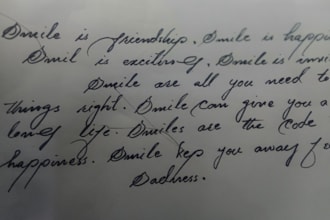 Smile is friendship. Smile is happ
Smil is exciting. Smile is inn
Smile are all you need to
things right. Smile can give you a
long life. Smiles are the code
happiness. Smile kep you away f
Sadness.